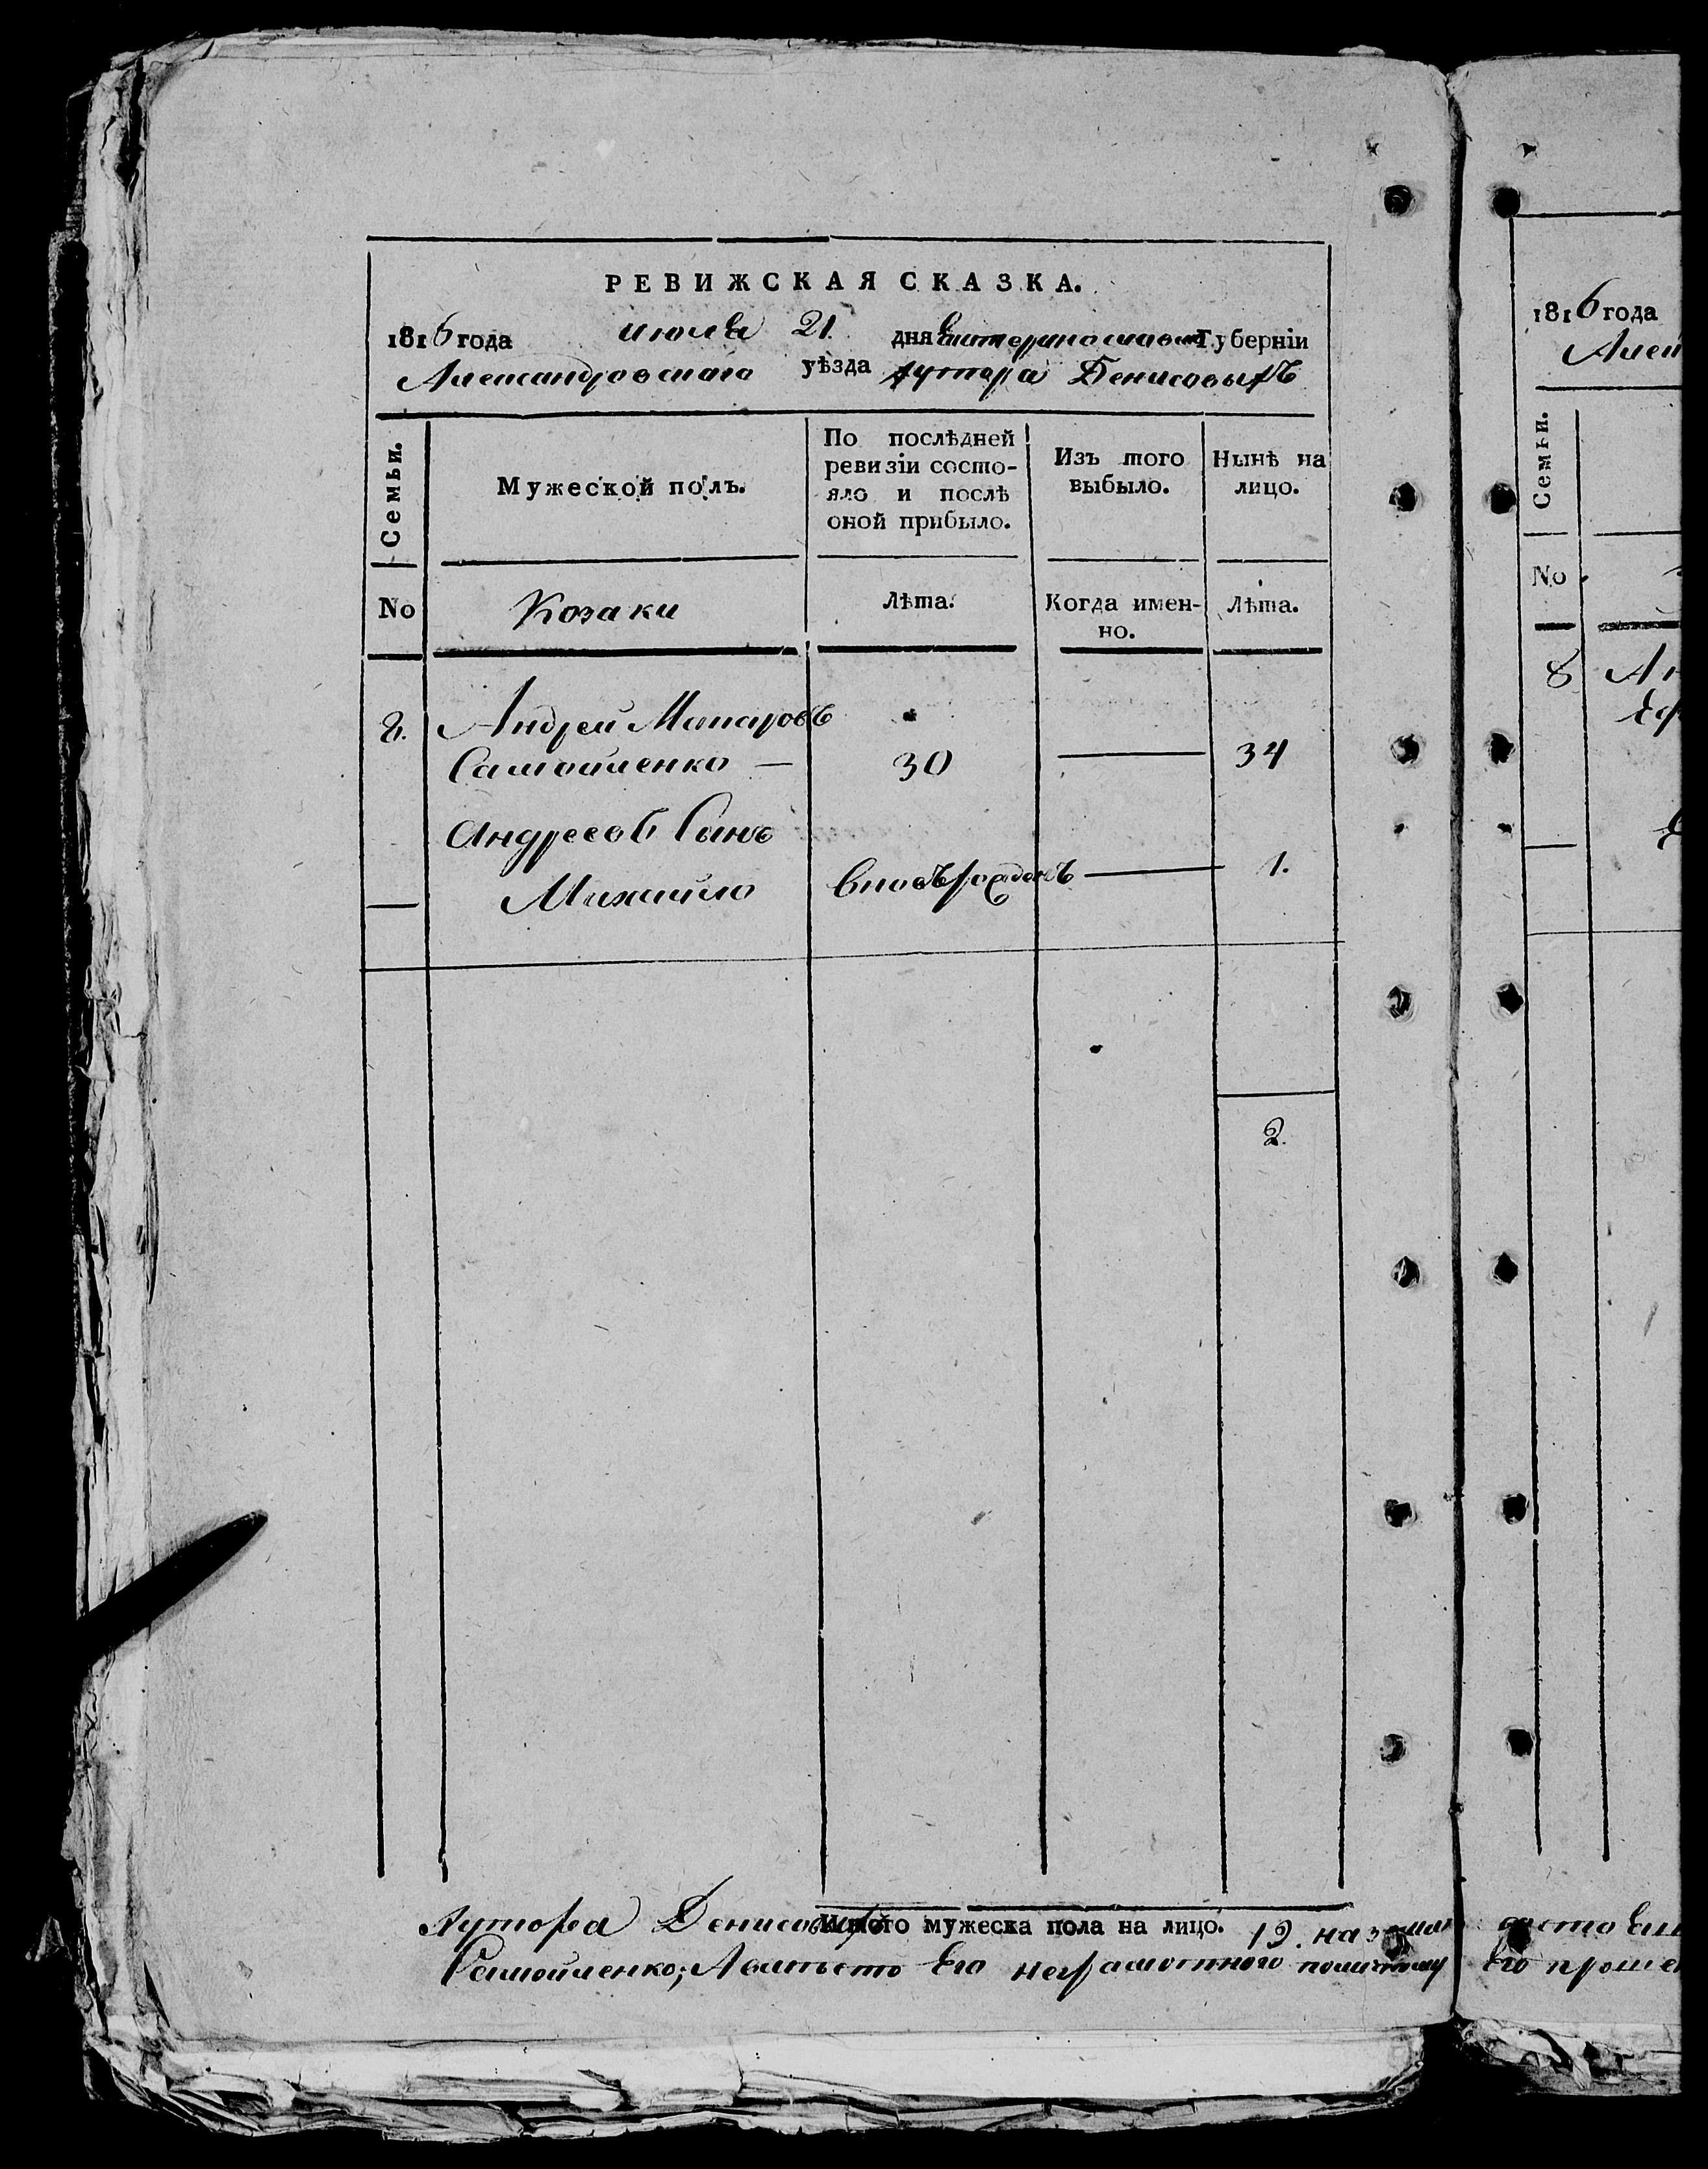 РЕВИЖСКАЯ СКАЗКА.
1816 года июля 21. дня Екатеринославской Губерніи
Александровскаго уѣзда хутора Денисовыхъ
Семьи.
Мужеской полъ.
По послѣдней ревизіи состо-
яло и послѣ
оной прибыло.
Изъ того
выбыло.
Нынѣ на
лицо.
No
Козаки
Лѣта.
Когда имен-
но.
Лѣта.
8. Андрей Макаровъ
Самойленко — 30 — 34
Андреевъ Сынъ
Михайло вновьрожденъ — 1.
2.
Итого мужеска пола на лицо. 19.
Хутора Денисовыхъ
Самойленко, Авместо Его неграмотного
1816 года
Алек
Семьи.
No
8 Ан
Его проше